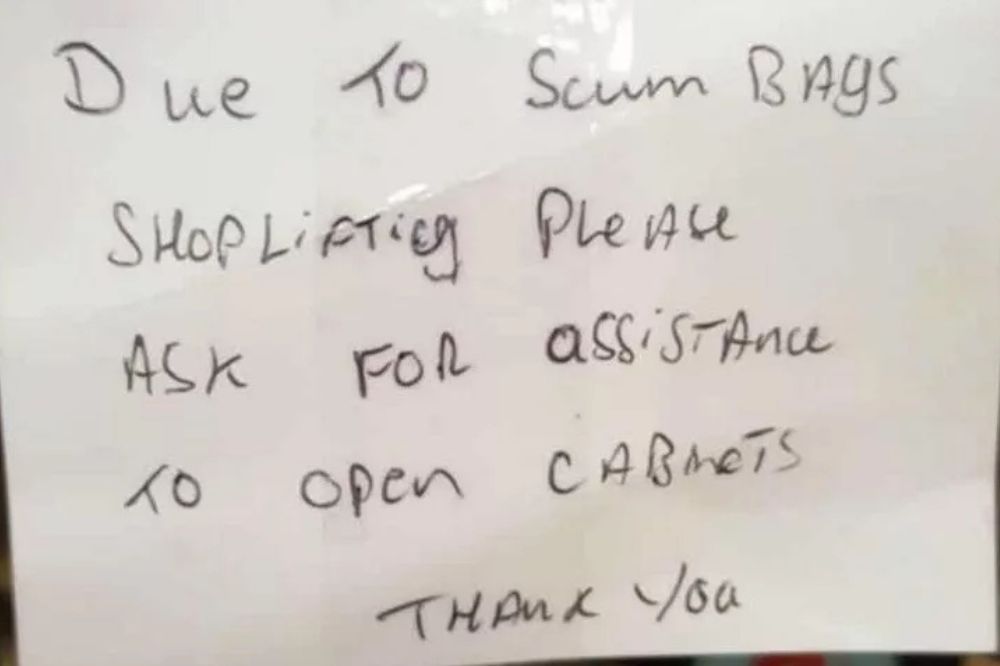 Due To Scum BAgS
SHOPLiFTing PLeASe
ASK FOR aSSiSTAnce
TO open CABineTS
THAnK You